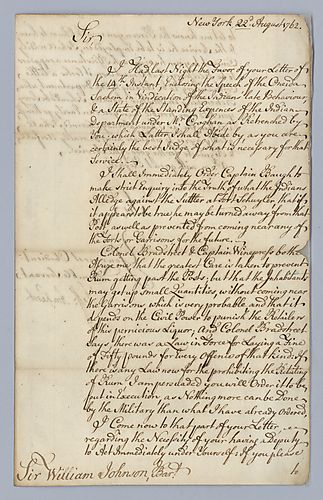 New York 22.d August 1762.
Sir
I Had last Night the Favor of your Letter of
the 14th Instant, Enclosing the Speech of the Oneida
Sachem, in Vindication of the Indians late Behaviour
& a State of the Standing Expences of the Indian
Department under Mr. Croghan as Retrenched by
You, which Latter I shall Abide by as you are
certainly the best Judge of what is necessary for that
Service.
I Shall Immediately Order Captain Baugh to
make strict inquiry into the truth of what the Indians
Alledge against the Sutler at Fort Schuyler, that if
it appears to be true he may be turned away from that
Post as well as prevented from coming near any of
the Forts or Garrisons for the future.
Colonel Bradstreet & Captain Winepress both
Assure me, that the greatest Care is taken to prevent
Rum getting past the Posts; but that the Inhabitants
may get up Small Quantities without coming near
the Garrisons which is very probable, and that it
depends on the Civil Power to punish the Retailers
of this pernicious Liquor, And Colonel Bradstreet
Says there was a Law in Force for Laying a Fine
of Fifty pounds for Every Offence of that kind; If
there is any Law now for the prohibiting the Selling
of Rum I am persuaded you will Order it to be
put in execution as Nothing more can be Done
by the Military than what I have already Ordered.
I Come now to that part of your Letter
regarding the Necessity of your having a Deputy
to Act Immediately under Yourself; If you please
to
Sir William Johnson Bart.